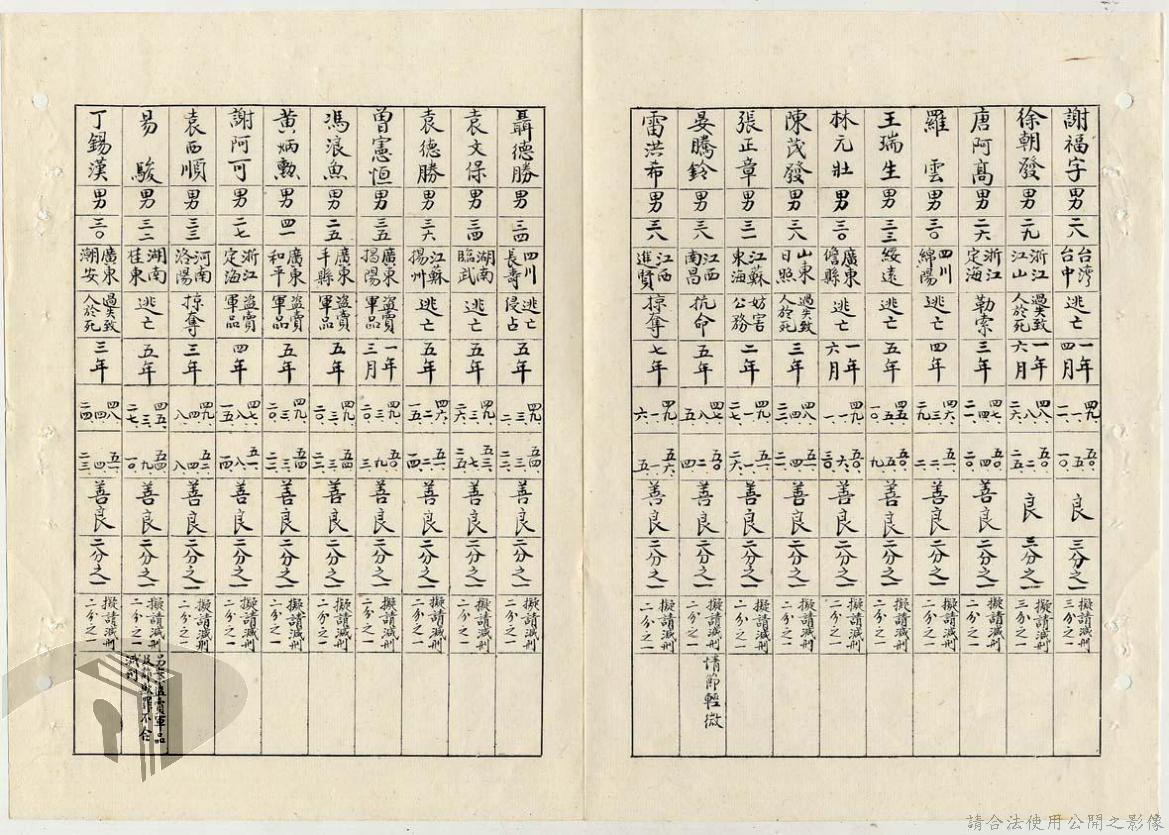 謝福字 男 二八 台灣台中 逃亡 一年四月 四九、一、一一、 五〇、五、一〇、 良 三分之一 擬請減刑三分之一
徐朝發 男 二九 浙江江山 過失致人於死 一年六月 四八、八、二六、 五〇、二、二五、 良 三分之一 擬請減刑三分之一
唐阿高 男 二六 浙江定海 勒索 三年 善良 二分之一 擬請減刑二分之一
羅雲 男 三〇 四川綿陽 逃亡 四年 善良 二分之一 擬請減刑二分之一
王瑞生 男 三三 綏遠 逃亡 五年 善良 二分之一 擬請減刑二分之一
林元壯 男 三〇 廣東儋縣 逃亡 一年六月 善良 二分之一 擬請減刑二分之一
陳茂發 男 三八 山東日照 過失致人於死 三年 善良 二分之一 擬請減刑二分之一
張正章 男 三一 江蘇東海 妨害公務 二年 善良 二分之一 擬請減刑二分之一
晏騰鈴 男 三八 江西南昌 抗命 五年 善良 二分之一 擬請減刑二分之一 情節輕微
雷洪希 男 三八 江西進賢 掠奪 七年 四九、一、六、 五六、一、五、 善良 二分之一 擬請減刑二分之一
聶德勝 男 三四 四川長壽 逃亡侵占 五年 善良 二分之一 擬請減刑二分之一
袁文保 男 三四 湖南臨武 逃亡 五年 善良 二分之一 擬請減刑二分之一
袁德勝 男 三六 江蘇揚州 逃亡 五年 善良 二分之一 擬請減刑二分之一
曾憲恒 男 三五 廣東揭陽 盜賣軍品 一年三月 善良 二分之一 擬請減刑二分之一
馮浪魚 男 二五 廣東丰縣 盜賣軍品 五年 善良 二分之一 擬請減刑二分之一
黃炳勲 男 四一 廣東和平 盜賣軍品 五年 善良 二分之一 擬請減刑二分之一
謝阿可 男 二七 浙江定海 盜賣軍品 四年 四七、八、一五、 五一、八、一四、 善良 二分之一 擬請減刑二分之一
袁西順 男 三三 河南洛陽 掠奪 三年 四九、四、八、 五二、四、八、 善良 二分之一 擬請減刑二分之一
易駿 男 三二 湖南桂東 逃亡 五年 善良 二分之一 擬請減刑二分之一
丁錫漢 男 三〇 廣東潮安 過失致人於死 三年 四八、四、二四、 五一、四、二三、 善良 二分之一 擬請減刑二分之一
請合法使用公開之影像